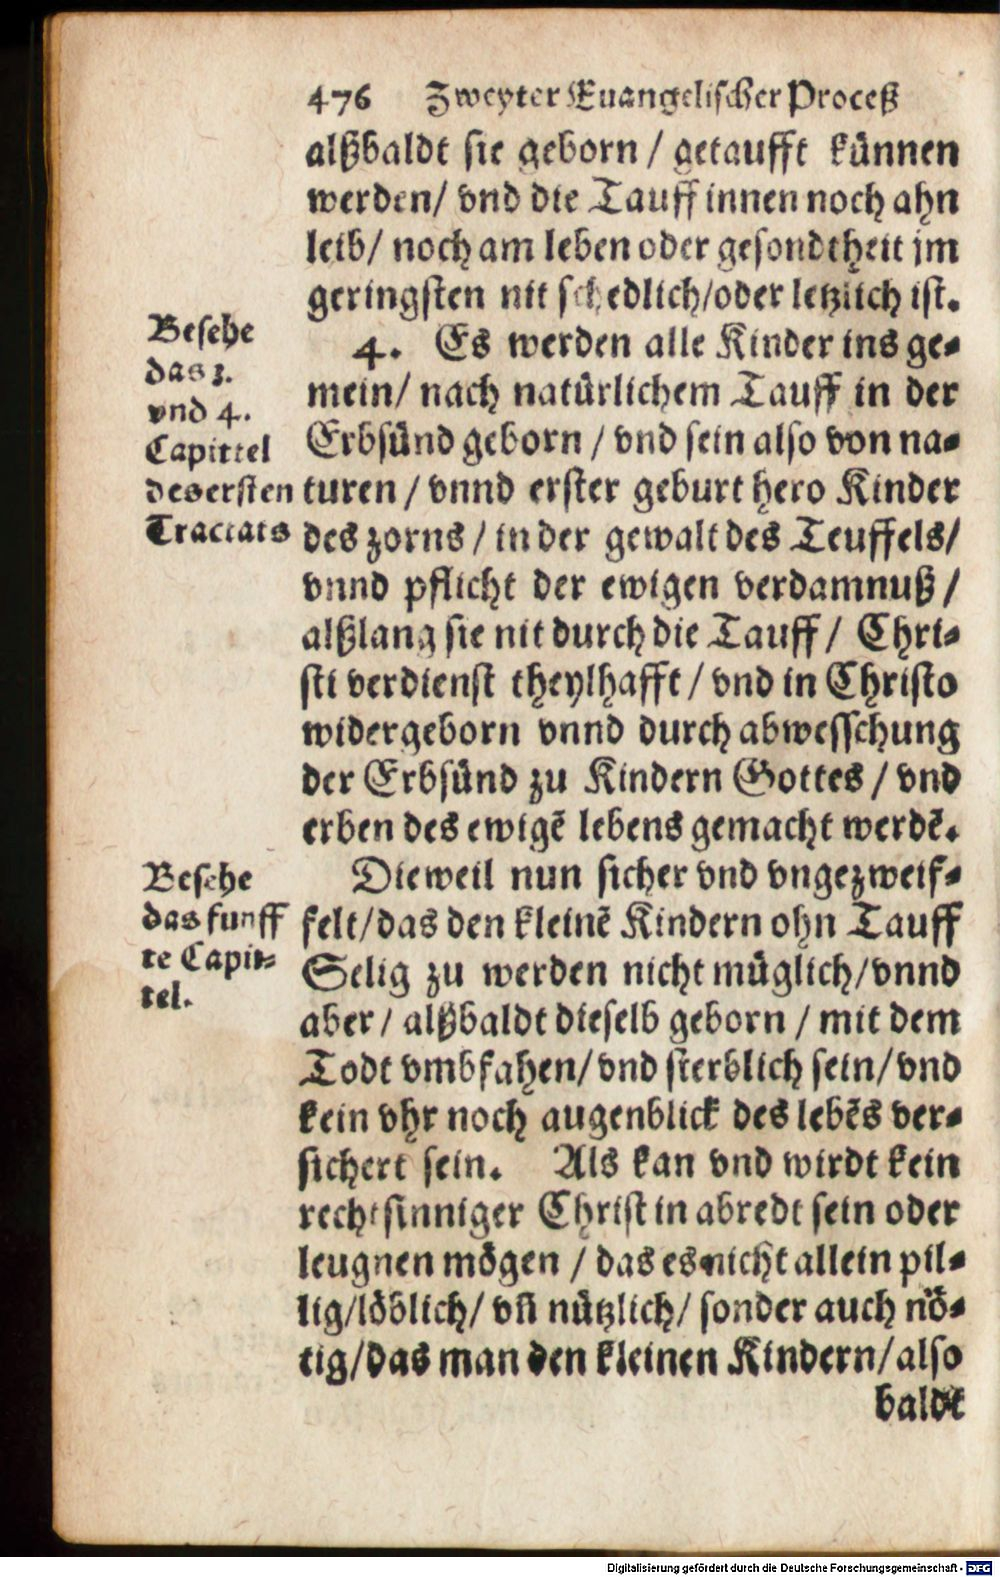 476 Zweyter Euangelischer Proceß
alßbaldt sie geborn / getaufft künnen
werden/ vnd die Tauff innen noch ahn
leib/ noch am leben oder gesondtheit jm
geringsten nit schedlich/oder letzlich ist.
4. Es werden alle Kinder ins ge-
mein/ nach natürlichem Tauff in der
Erbsünd geborn / vnd sein also von na-
turen / vnnd erster geburt hero Kinder
des zorns / in der gewalt des Teuffels/
vnnd pflicht der ewigen verdamnuß /
alßlang sie nit durch die Tauff / Chri-
sti verdienst theylhafft / vnd in Christo
widergeborn vnnd durch abwesschung
der Erbsünd zu Kindern Gottes / vnd
erben des ewigē lebens gemacht werdē.
Besehe
das 3.
vnd 4.
Capittel
des ersten
Tractats
Dieweil nun sicher vnd vngezweif-
felt/das den kleinē Kindern ohn Tauff
Selig zu werden nicht müglich/vnnd
aber / alßbaldt dieselb geborn / mit dem
Todt vmbfahen/ vnd sterblich sein/ vnd
kein vhr noch augenblick des lebēs ver-
sichert sein. Als kan vnd wirdt kein
rechtsinniger Christ in abredt sein oder
leugnen mögen / das es nicht allein pil-
lig/löblich/ vñ nützlich/ sonder auch nö-
tig/das man den kleinen Kindern/also
Besehe
das funff
te Capit-
tel.
baldt
Digitalisierung gefördert durch die Deutsche Forschungsgemeinschaft - DFG